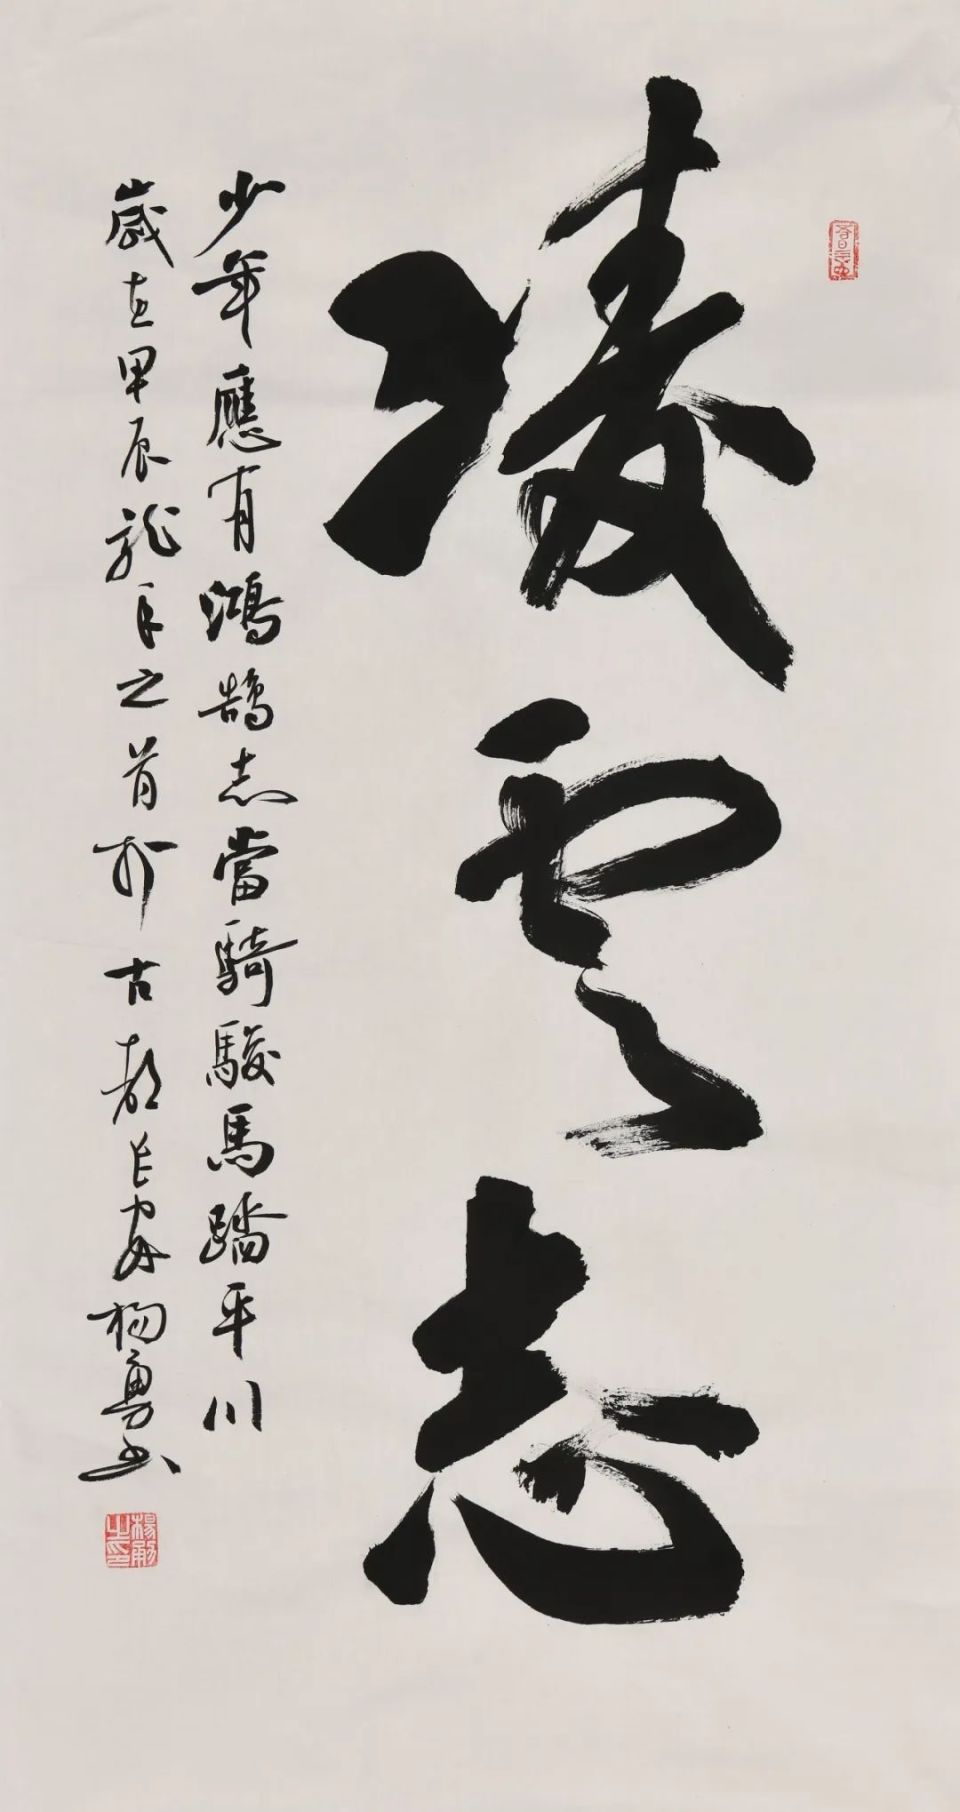 凌雲志
少年應有鴻鵠志當騎駿馬踏平川
歲在甲辰龍年之首於古都長安楊勇書
楊勇之印